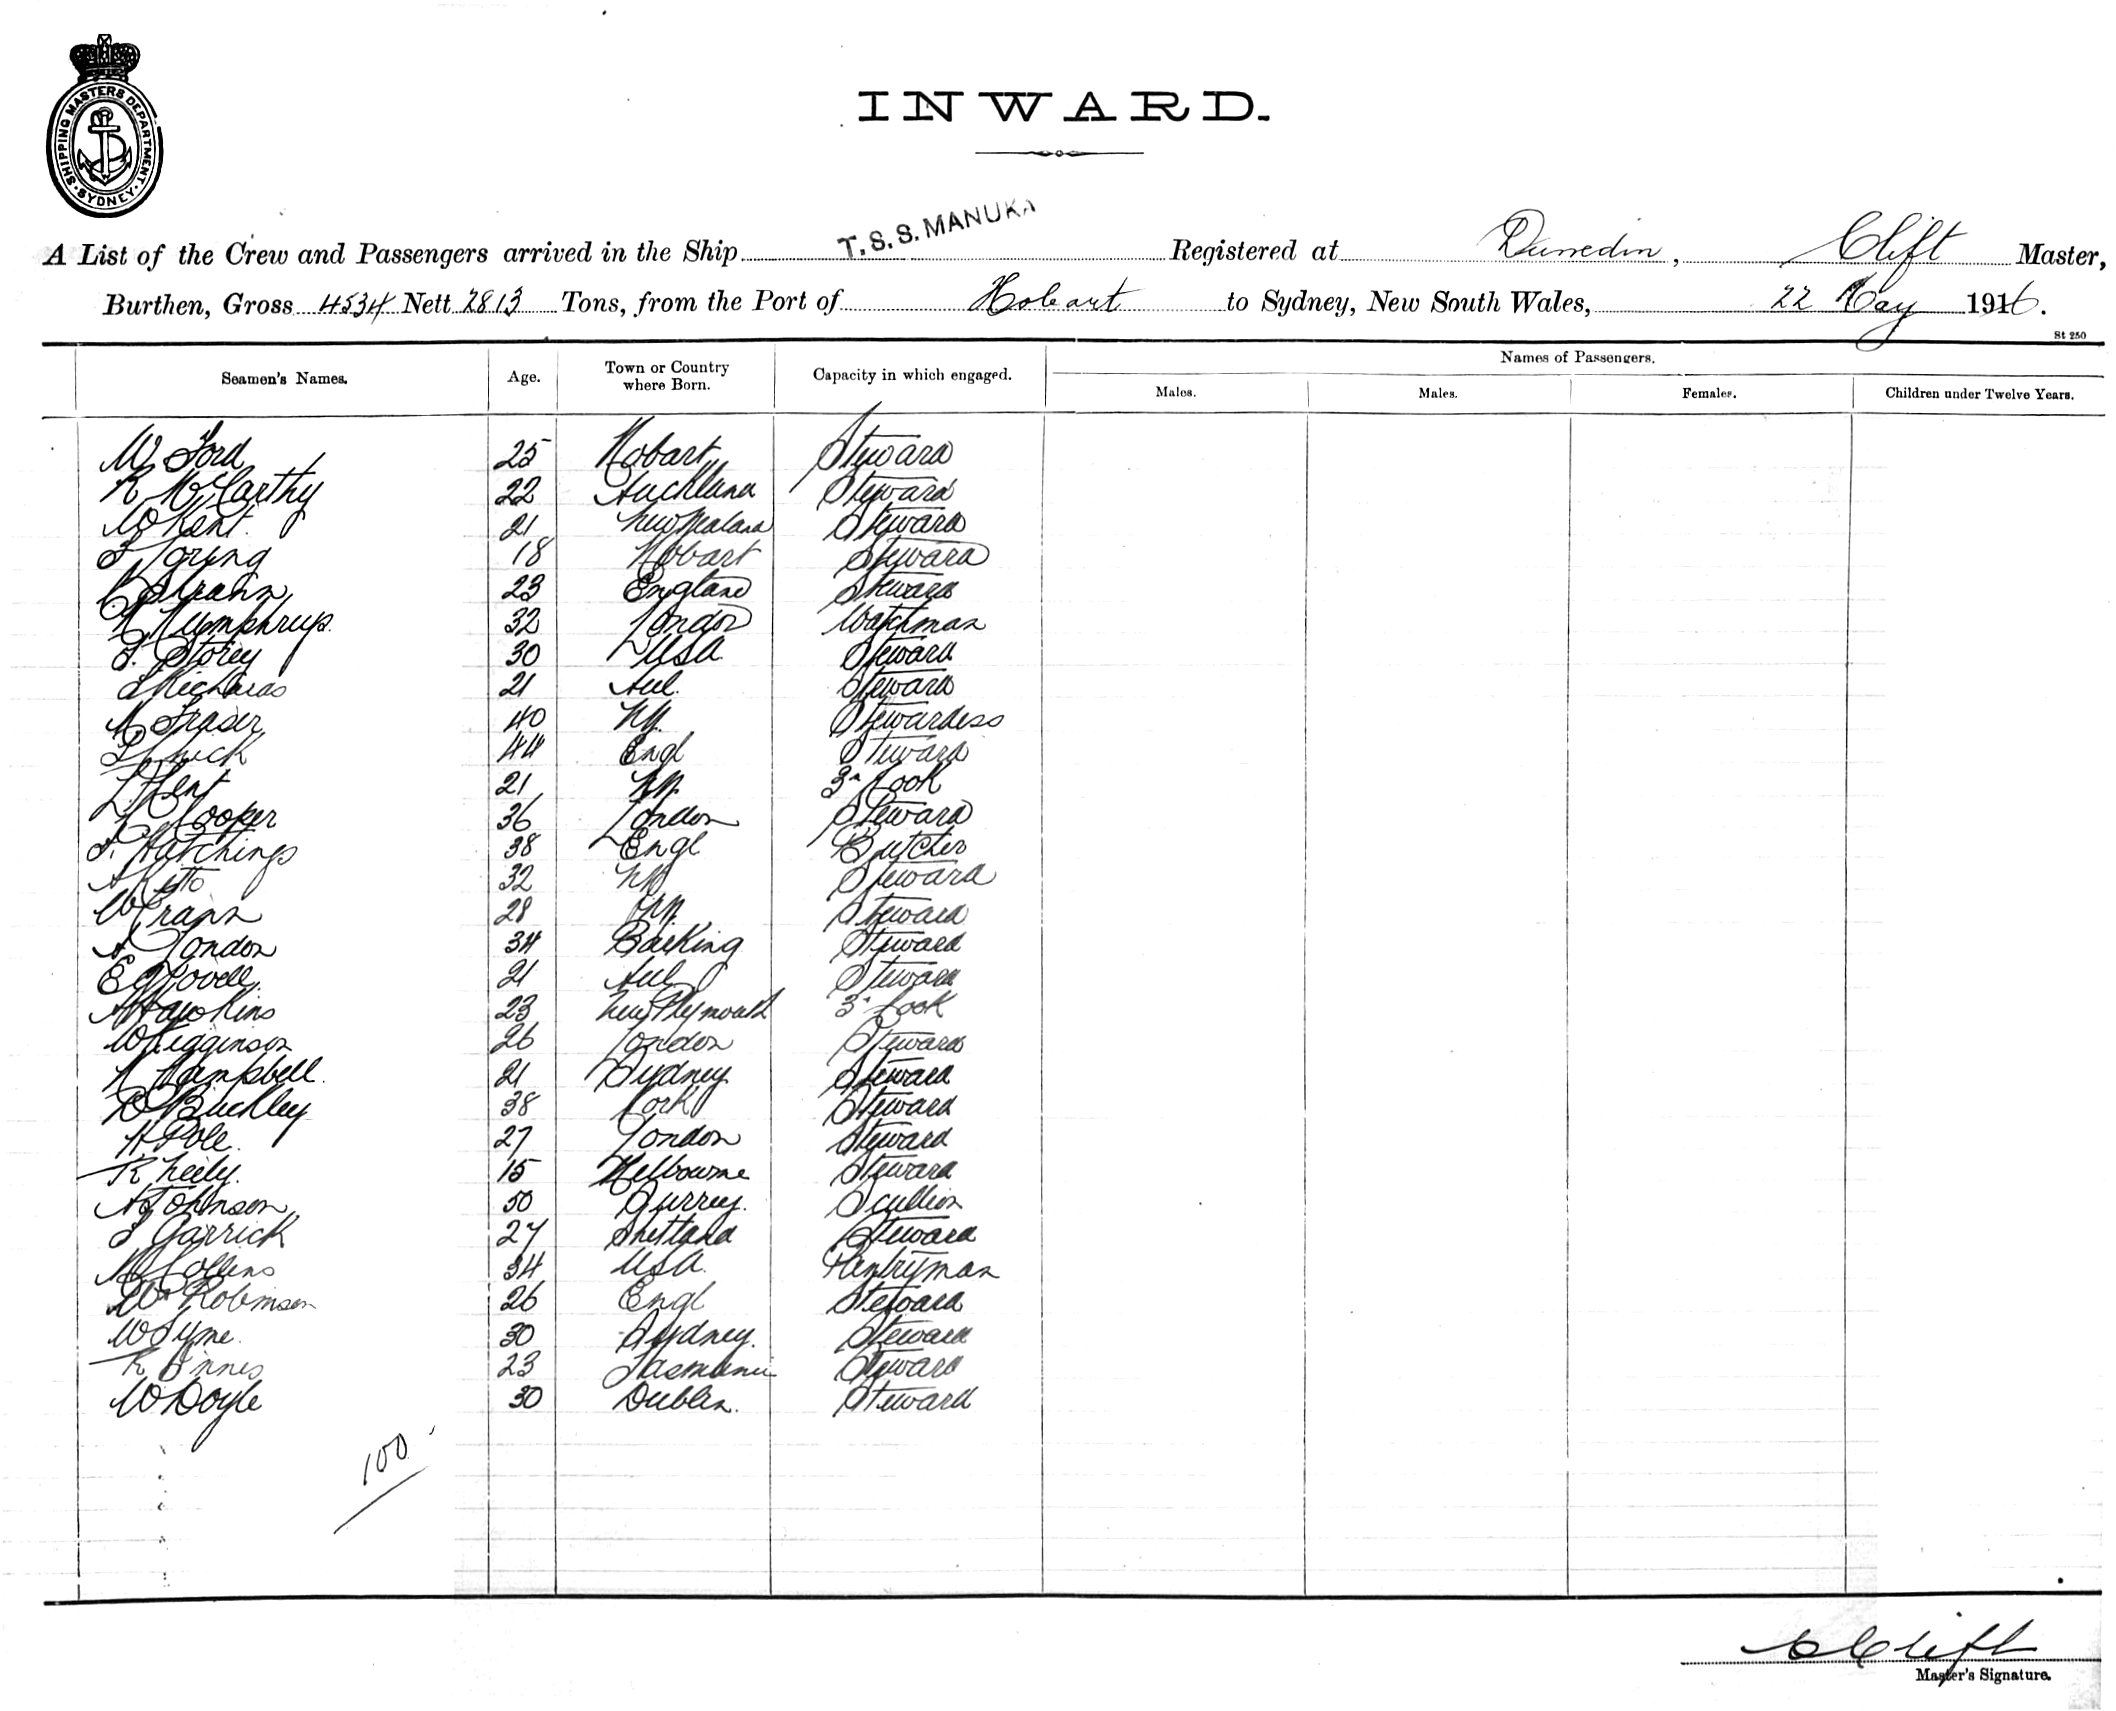 SHIPPING MASTERS DEPARTMENT · SYDNEY ·
INWARD.
A List of the Crew and Passengers arrived in the Ship T.S.S. MANUKA Registered at Dunedin, Clift Master,
Burthen, Gross 4534 Nett 2813 Tons, from the Port of Hobart to Sydney, New South Wales, 22 May 1916.
St 250
Seamen's Names. Age. Town or Country where Born. Capacity in which engaged. Names of Passengers.
Males. Males. Females. Children under Twelve Years.
W Ford 25 Hobart Steward
R McCarthy 22 Auckland Steward
W Kent. 21 New Zealand Steward
18 Hobart Steward
C Strahn 23 England Steward
H Humphrys. 32 London Watchman
F. Storey 30 USA Steward
Richards 21 Aul. Steward
M Fraser 40 NZ. Stewardess
44 Engl Steward
L Kent 21 NZ. 3rd Cook
H Cooper 36 London Steward
F. Hutchings 38 Engl Butcher
A Kitto 32 NZ Steward
W Crann 28 NZ. Steward
A London 34 Barking Steward
E Powell. 21 Aul Steward
A Hawkins 23 New Plymouth 3rd Cook
W Higginson 26 London Steward
R Campbell. 21 Sydney Steward
D Buckley 38 Cork Steward
H Pole. 27 London Steward
R Neely. 15 Melbourne Steward
A Johnson 50 Surrey. Scullion
J Garrick 27 Shetland Steward
M Collins 34 USA. Pantryman
Wm Robinson 26 Engl Steward
W Syme. 30 Sydney. Steward
R Innes 23 Tasmania Steward
W Doyle 30 Dublin. Steward
100
C Clift
Master's Signature.